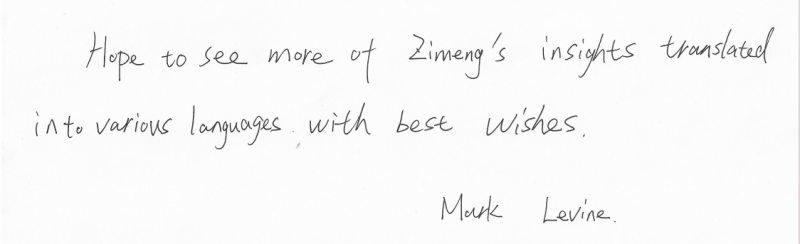 Hope to see more of Zimeng's insights translated
into various languages, with best wishes.
Mark Levine.